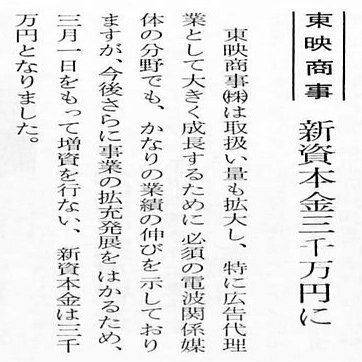 東映商事
新資本金三千万円に
東映商事㈱は取扱い量も拡大し、特に広告代理
業として大きく成長するために必須の電波関係媒
体の分野でも、かなりの業績の伸びを示しており
ますが、今後さらに事業の拡充発展をはかるため、
三月一日をもって増資を行ない、新資本金は三千
万円となりました。